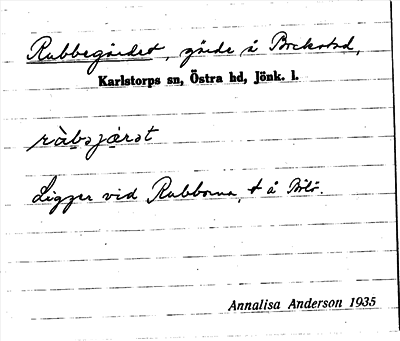 Rubbegärdet, gärde å Bockstad,
Karlstorps sn, Östra hd, Jönk. l.
ràbsjærst
Ligger vid Rubborna, t å Bölö.
Annalisa Anderson 1935